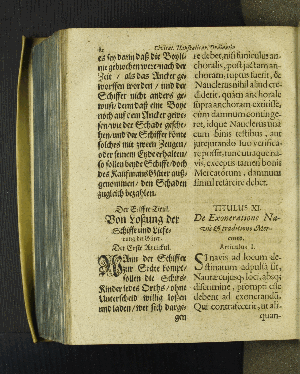 es sey dann daß die Boye
nit gebrochen were nach der
Zeit / als das Ancker ge-
worffen worden / und der
Schiffer nicht anders ge-
wust / denn daß eine Boye
noch auff dem Ancker gewe-
sen / wie der Schade gesche-
hen / und der Schiffer könte
solches mit zween Zeugen /
oder seinem Eyde erhalten /
so sollen beyde Schiffe / doch
des Kauffmans Güter auß-
genommen / den Schaden
zugleich bezahlen.
Der Eilffte Titul.
Von Loßung der
Schiffe und Liefe-
rung der Güter.
Der Erste Articul.
Wann der Schiffer
zur Stete kompt /
sollen die Schif-
Kinder jedes Orths / ohne
Unterscheid willig loßen
und laden / wer sich darge-
gen
re debet, nisi funiculus an-
choralis, post jactam an-
choram, ruptus fuerit, &
Nauclerus nihil aliud cre-
diderit, quam anchorale
supra anchoram extitisse,
cum damnum continge-
ret, idque Nauclerus una
cum binis testibus, aut
jurejurando suo verifica-
re possit, tunc utraque na-
vis, exceptis tamen bonis
Mercatorum, damnum
simul resarcire debet.
TITULUS XI.
De Exoneratione Na-
vis & traditione Mer-
cium.
Articulus I.
Navis ad locum de-
stinatum adpulsâ sit,
Nautæ cujusq; loci, absq;
discrimine, prompti esse
debent ad exonerandũ.
Qui contrafecerit, ut ali-
quan-